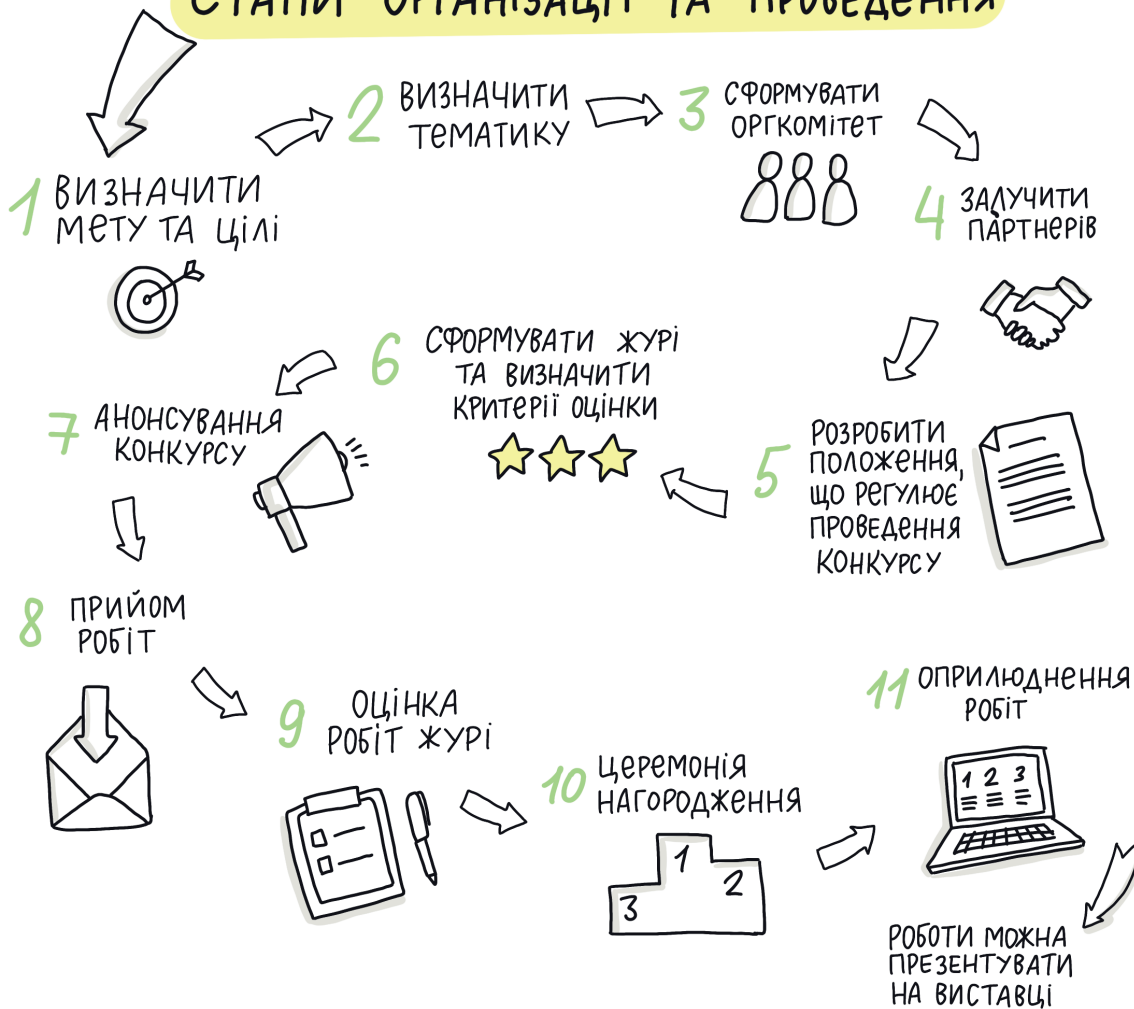 ЕТАПИ ОРГАНІЗАЦІЇ ТА ПРОВЕДЕННЯ
1 ВИЗНАЧИТИ
МЕТУ ТА ЦІЛІ
2 ВИЗНАЧИТИ
ТЕМАТИКУ
3 СФОРМУВАТИ
ОРГКОМІТЕТ
4 ЗАЛУЧИТИ
ПАРТНЕРІВ
5 РОЗРОБИТИ
ПОЛОЖЕННЯ,
ЩО РЕГУЛЮЄ
ПРОВЕДЕННЯ
КОНКУРСУ
6 СФОРМУВАТИ ЖУРІ
ТА ВИЗНАЧИТИ
КРИТЕРІЇ ОЦІНКИ
7 АНОНСУВАННЯ
КОНКУРСУ
8 ПРИЙОМ
РОБІТ
9 ОЦІНКА
РОБІТ ЖУРІ
10 ЦЕРЕМОНІЯ
НАГОРОДЖЕННЯ
1
2
3
11 ОПРИЛЮДНЕННЯ
РОБІТ
1 2 3
РОБОТИ МОЖНА
ПРЕЗЕНТУВАТИ
НА ВИСТАВЦІ